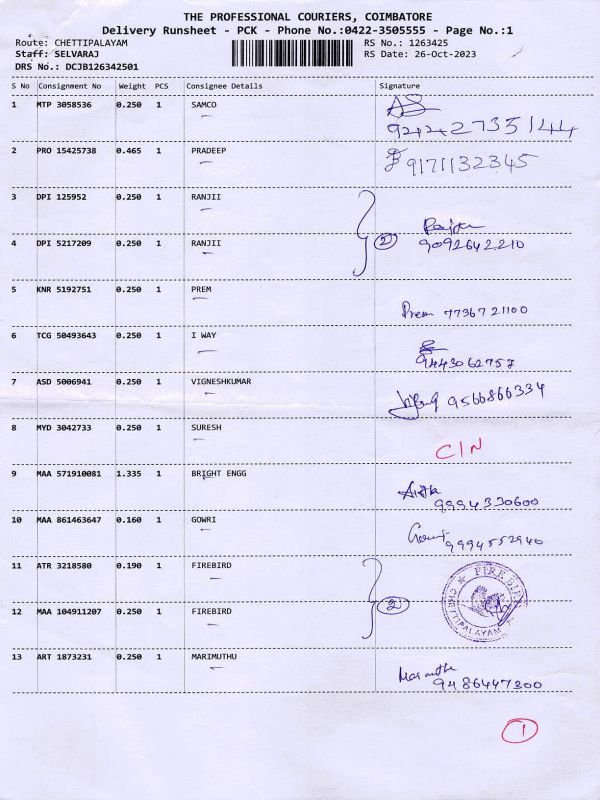 THE PROFESSIONAL COURIERS, COIMBATORE
Delivery Runsheet - PCK - Phone No.:0422-3505555 - Page No.:1
Route: CHETTIPALAYAM RS No.: 1263425
Staff: SELVARAJ RS Date: 26-Oct-2023
DRS No.: DCJB126342501
S No Consignment No Weight PCS Consignee Details Signature
1 MTP 3058536 0.250 1 SAMCO
2 PRO 15425738 0.465 1 PRADEEP
9171132345
3 DPI 125952 0.250 1 RANJII
2
4 DPI 5217209 0.250 1 RANJII
9092642210
5 KNR 5192751 0.250 1 PREM
Prem 7736721100
6 TCG 50493643 0.250 1 I WAY
9443062757
7 ASD 5006941 0.250 1 VIGNESHKUMAR
9566866334
8 MYD 3042733 0.250 1 SURESH
C/N
9 MAA 571910081 1.335 1 BRIGHT ENGG
9994330600
10 MAA 861463647 0.160 1 GOWRI
9994552940
11 ATR 3218580 0.190 1 FIREBIRD
FIRE BIRD
CHETTIPALAYAM
2
12 MAA 104911207 0.250 1 FIREBIRD
13 ART 1873231 0.250 1 MARIMUTHU
9486447300
1